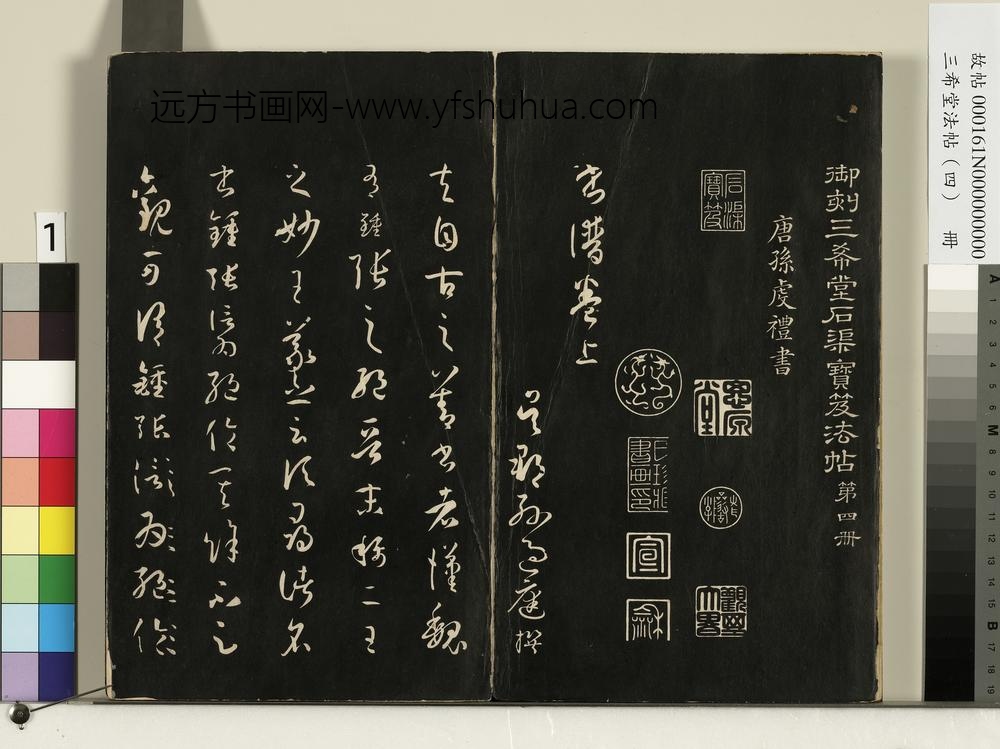 远方书画网-www.yfshuhua.com
故帖 000161N000000000
三希堂法帖（四） 冊
御刻三希堂石渠寶笈法帖第四冊
唐孫虔禮書
石渠寶笈
觀其大略
宣
龢
書譜卷上
吳郡孫過庭撰
夫自古之善書者漢魏
有鍾張之絕晉末稱二王
之妙王羲之云頃尋諸名
書鍾張信為絕倫其餘不足
觀可謂鍾張云沒而羲獻
1
A 1 2 3 4 5 6 M 8 9 10 11 12 13 14 15 B 17 18 19